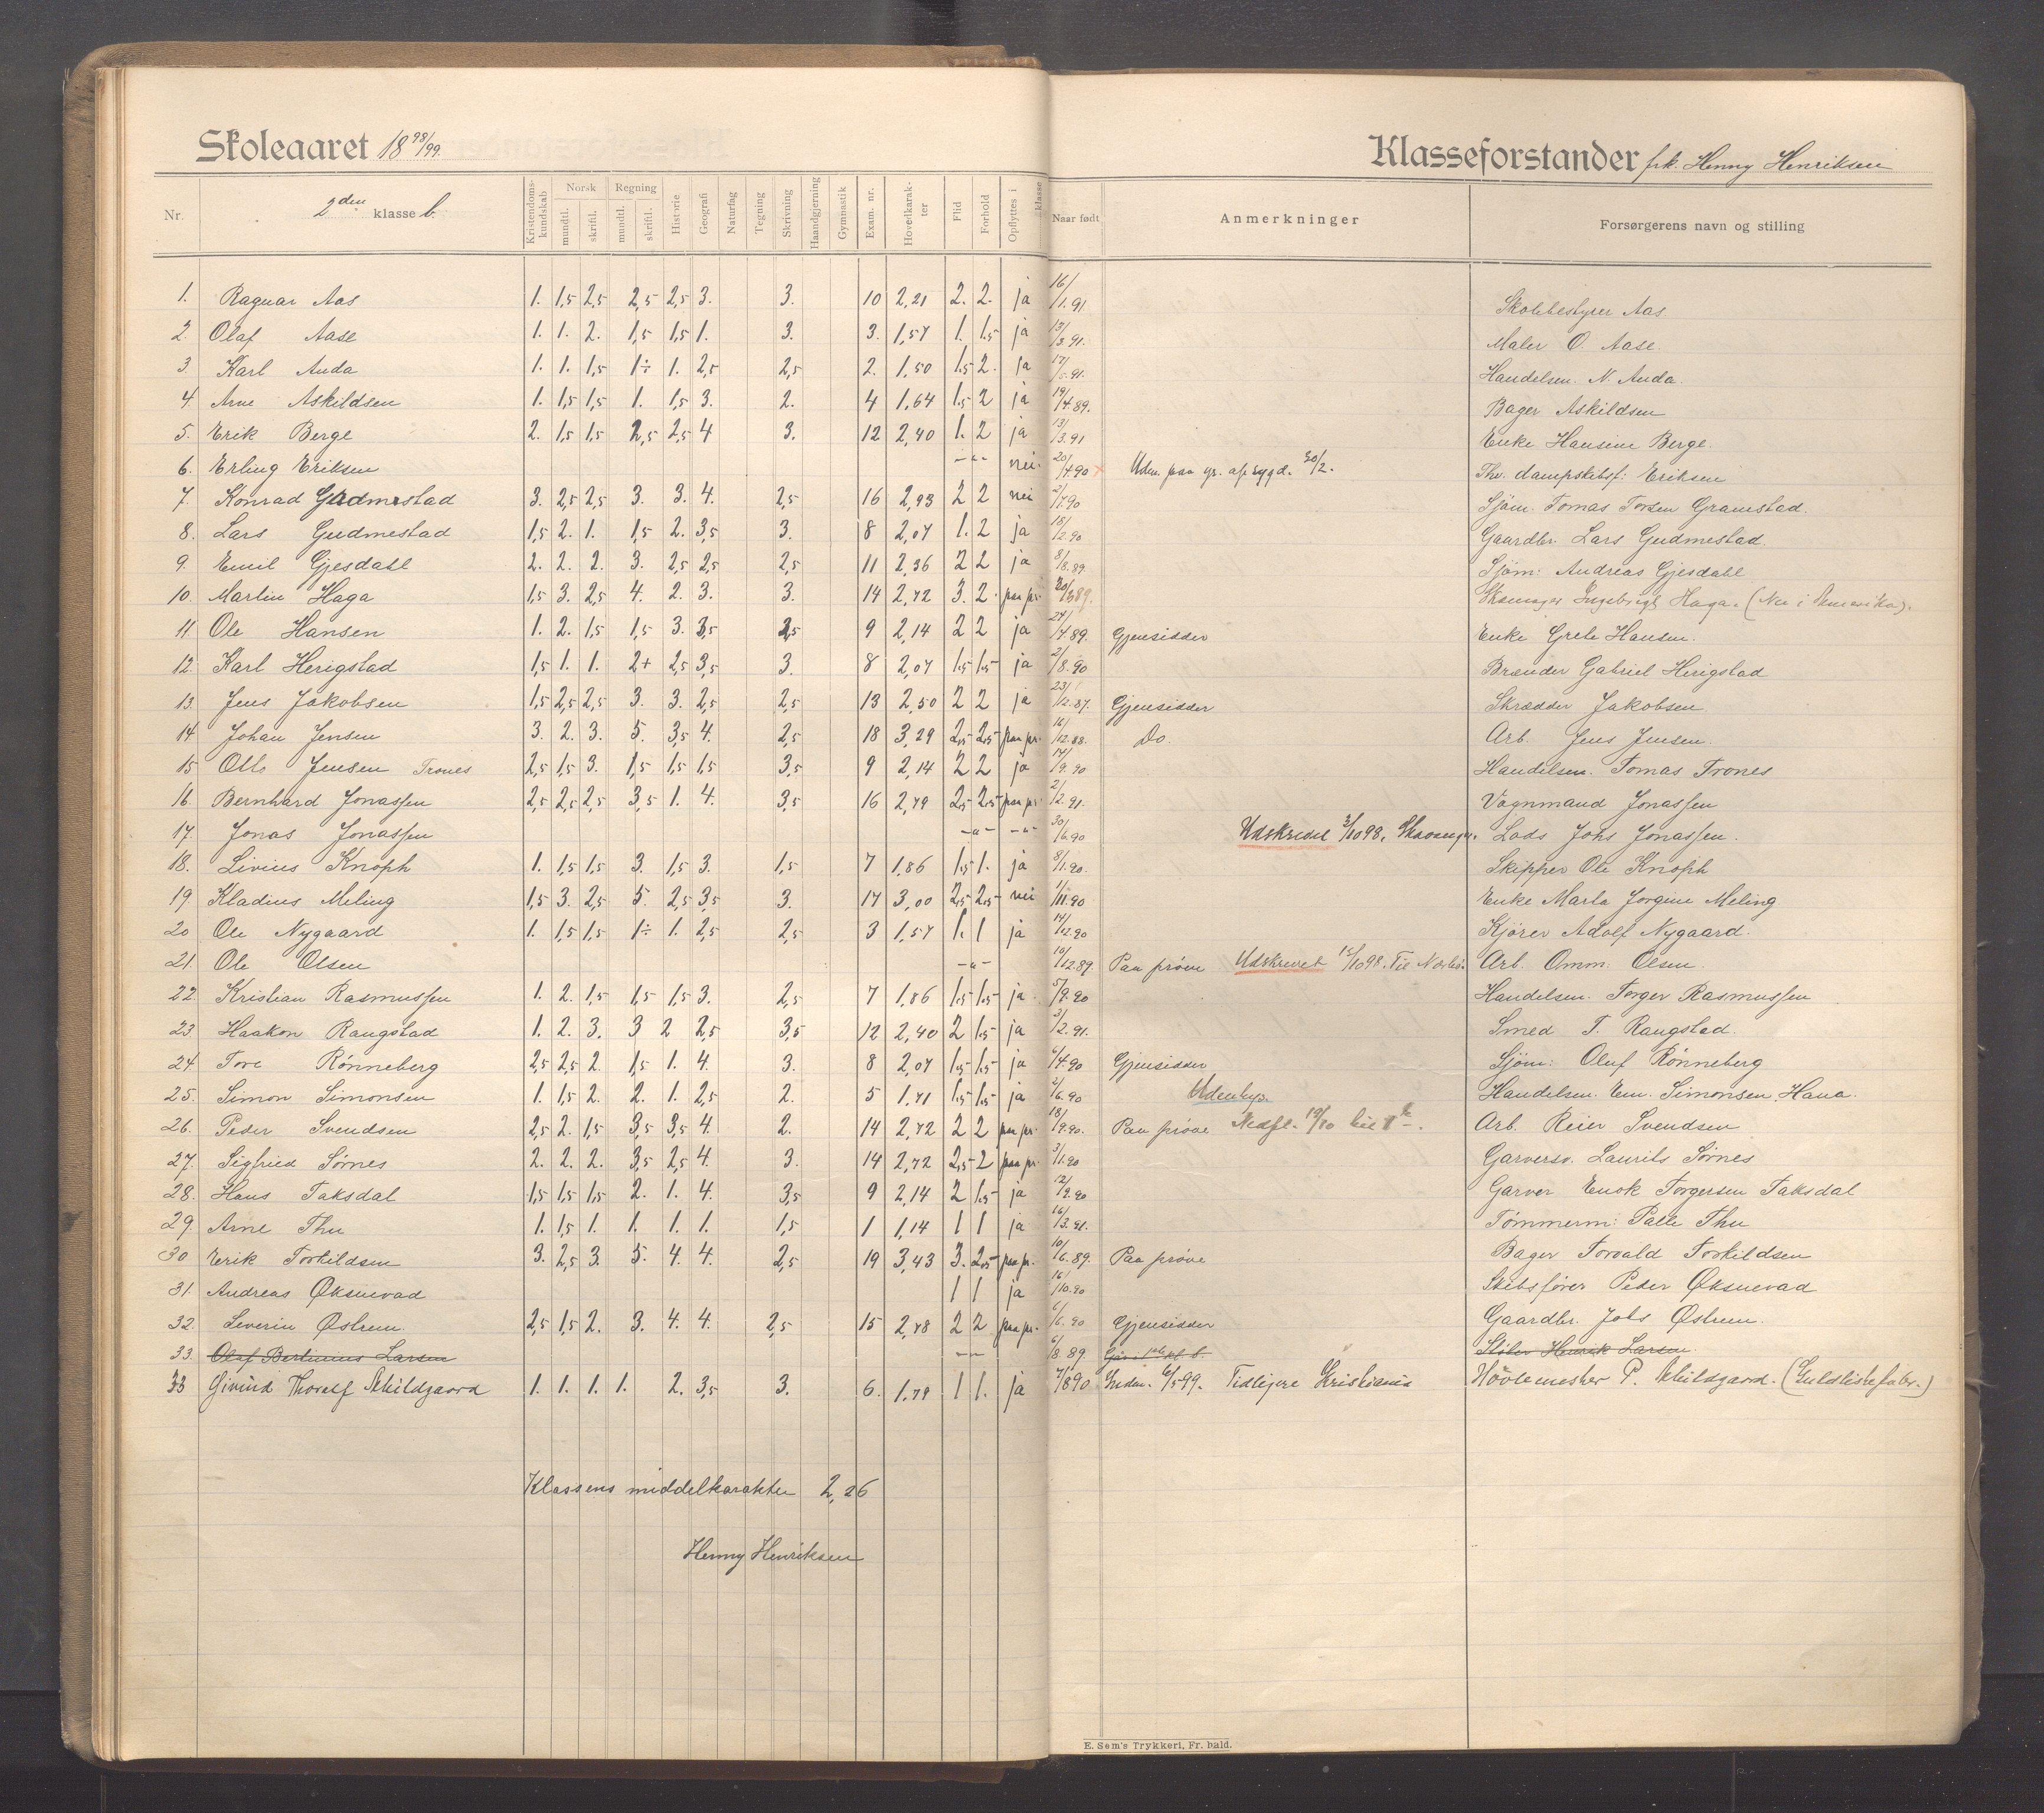 Skoleaaret 18 98/99.
Klasseforstander frk. Henny Henriksen
Nr. 2den klasse b. Kristendomskundskab Norsk mundtl. skriftl. Regning mundtl. skriftl. Historie Geografi Naturfag Tegning Skrivning Haandgjerning Gymnastik Exam. nr. Hovedkarakter Flid Forhold Opflyttes i klasse Naar født Anmerkninger Forsørgerens navn og stilling
1. Ragnar Aas 1. 1,5 2,5 2,5 2,5 3. 3. 10 2,21 2. 2. ja 16/1.91 Skolebestyrer Aas
2. Olaf Aase 1. 1. 2. 1,5 1,5 1. 3. 3. 1,57 1. 1.5 ja 13/3.91. Maler O. Aase.
3. Karl Anda 1. 1. 1,5 1÷ 1. 2,5 2,5 2. 1,50 1.5 2. ja 17/5.91. Handelsm. N. Anda.
4. Arne Askildsen 1. 1,5 1,5 1. 1,5 3. 2. 4 1,64 1.5 2 ja 19/4.89. Bager Askildsen
5. Erik Berge 2. 1,5 1,5 2,5 2,5 4 3. 12 2,40 1. 2 ja 13/3.91 Enke Hansine Berge.
6. Erling Eriksen -"- nei. 20/4.90 Uden. paa gr. af sygd. 20/2. Thv. dampskibsf: Eriksen
7. Konrad Gudmestad 3. 2,5 2,5 3. 3. 4. 2,5 16 2,93 2 2 nei 2/7.90 Sjøm. Tomas Torsen Gramstad.
8. Lars Gudmestad 1,5 2. 1. 1,5 2. 3,5 3. 8 2,07 1. 2 ja 18/2.90 Gaardbr. Lars Gudmestad.
9. Emil Gjesdahl 2. 2. 2. 3. 2,5 2,5 2,5 11 2,36 2 2 ja 8/8.89. Sjøm: Andreas Gjesdahl
10. Martin Haga 1,5 3. 2,5 4. 2. 3. 3. 14 2,72 3. 2. paa pr. 20/3 89. Skomager Ingebrigt Haga. (Nu i Amerika).
11. Ole Hansen 1. 2. 1,5 1,5 3. 3,5 2,5 9 2,14 2 2 ja 24/4.89. Gjensidder Enke Grete Hansen.
12. Karl Herigstad 1,5 1. 1. 2+ 2,5 3,5 3. 8 2,07 1.5 1.5 ja 2/8.90 Brænder Gabriel Herigstad
13. Jens Jakobsen 1,5 2,5 2,5 3. 3. 2,5 2,5 13 2,50 2 2 ja 23/12.87. Gjensidder Skrædder Jakobsen
14. Johan Jensen 3. 2. 3. 5. 3,5 4. 2,5 18 3,29 2.5 2.5 paa pr. 16/12.88. Do. Arb. Jens Jensen.
15 Otto Jensen Trones 2,5 1,5 3. 1,5 1,5 1,5 3,5 9 2,14 2 2 ja 14/9.90 Handelsm. Tomas Trones
16. Bernhard Jonassen 2,5 2,5 2,5 3,5 1. 4. 3,5 16 2,79 2.5 2.5 paa pr. 2/2.91. Vognmand Jonassen
17. Jonas Jonassen -"- -"- 30/6.90 Udskrevet 3/10 98, Stavanger. Lods Johs Jonassen.
18. Livius Knoph 1. 1,5 1,5 3. 1,5 3. 1,5 7 1,86 1.5 1. ja 8/1.90. Skipper Ole Knoph
19 Kladius Meling 1,5 3. 2,5 5. 2,5 3,5 3. 17 3,00 2.5 2.5 nei 1/11.90 Enke Marta Jorgine Meling
20 Ole Nygaard 1. 1,5 1,5 1÷ 1. 2,5 2,5 3 1,57 1. 1 ja 14/12.90 Kjører Adolf Nygaard.
21. Ole Olsen -"- 10/12.89. Paa prøve Udskrevet 15/10 98. Til Nærbø. Arb. Omm. Olsen.
22. Kristian Rasmussen 1. 2. 1,5 1,5 1,5 3. 2,5 7 1,86 1.5 1.5 ja 5/9.90 Handelsm. Torger Rasmussen
23. Haakon Raugstad 1. 2. 3. 3 2 2,5 3,5 12 2,40 2 1.5 ja 3/2.91. Smed T. Raugstad.
24 Tore Rønneberg 2,5 2,5 2 1,5 1. 4. 3. 8 2,07 1.5 1.5 ja 6/4.90 Gjensidder Sjøm: Oluf Rønneberg
25. Simon Simonsen 1. 1,5 2. 2. 1. 2,5 2. 5 1,71 1.5 1.5 ja 2/6.90 Udenbys. Handelsm. Em. Simonsen, Hana.
26. Peder Svendsen 2,5 2. 1,5 3,5 3,5 4. 2. 14 2,72 2 2 paa pr. 18/9.90. Paa prøve Nedfl. 19/10 Arb. Reier Svendsen
27. Sigfried Sørnes 2. 2. 2. 3,5 2,5 4. 3. 14 2,72 2.5 2 paa pr. 3/11.90 Garversv. Laurits Sørnes
28. Hans Taksdal 1,5 1,5 1,5 2. 1. 4. 3,5 9 2,14 2 1.5 ja 12/9.90 Garver Enok Torgersen Taksdal
29. Arne Thu 1. 1,5 1. 1. 1. 1. 1,5 1 1,14 1 1 ja 16/3.91. Tømmerm: Palle Thu
30 Erik Torkildsen 3. 2,5 3. 5. 4. 4. 2,5 19 3,43 3. 2.5 paa pr. 10/6.89. Paa prøve Bager Torvald Torkildsen
31. Andreas Øksnevad 1 1 ja 16/10.90 Skibsfører Peder Øksnevad
32. Severin Østrem. 2,5 1,5 2. 3. 4. 4. 2,5 15 2,78 2 2 paa pr. 6/6.90 Gjensidder Gaardbr. Johs Østrem.
33. Olaf Bertinius Larsen -"- 6/8.89 Går i 1ste kl. b. Støber Henrik Larsen.
33 Øivind Thoralf Skildgaard 1. 1. 1. 1. 2. 3,5 3. 6. 1.78 1 1. ja 7/8 90 Indm. 6/5 99. Tidligere Kristiania Høvlemester P. Skildgaard. (Guldlistefabr.)
Klassens middelkarakter 2,26
Henny Henriksen
E. Sem's Trykkeri, Fr. hald.